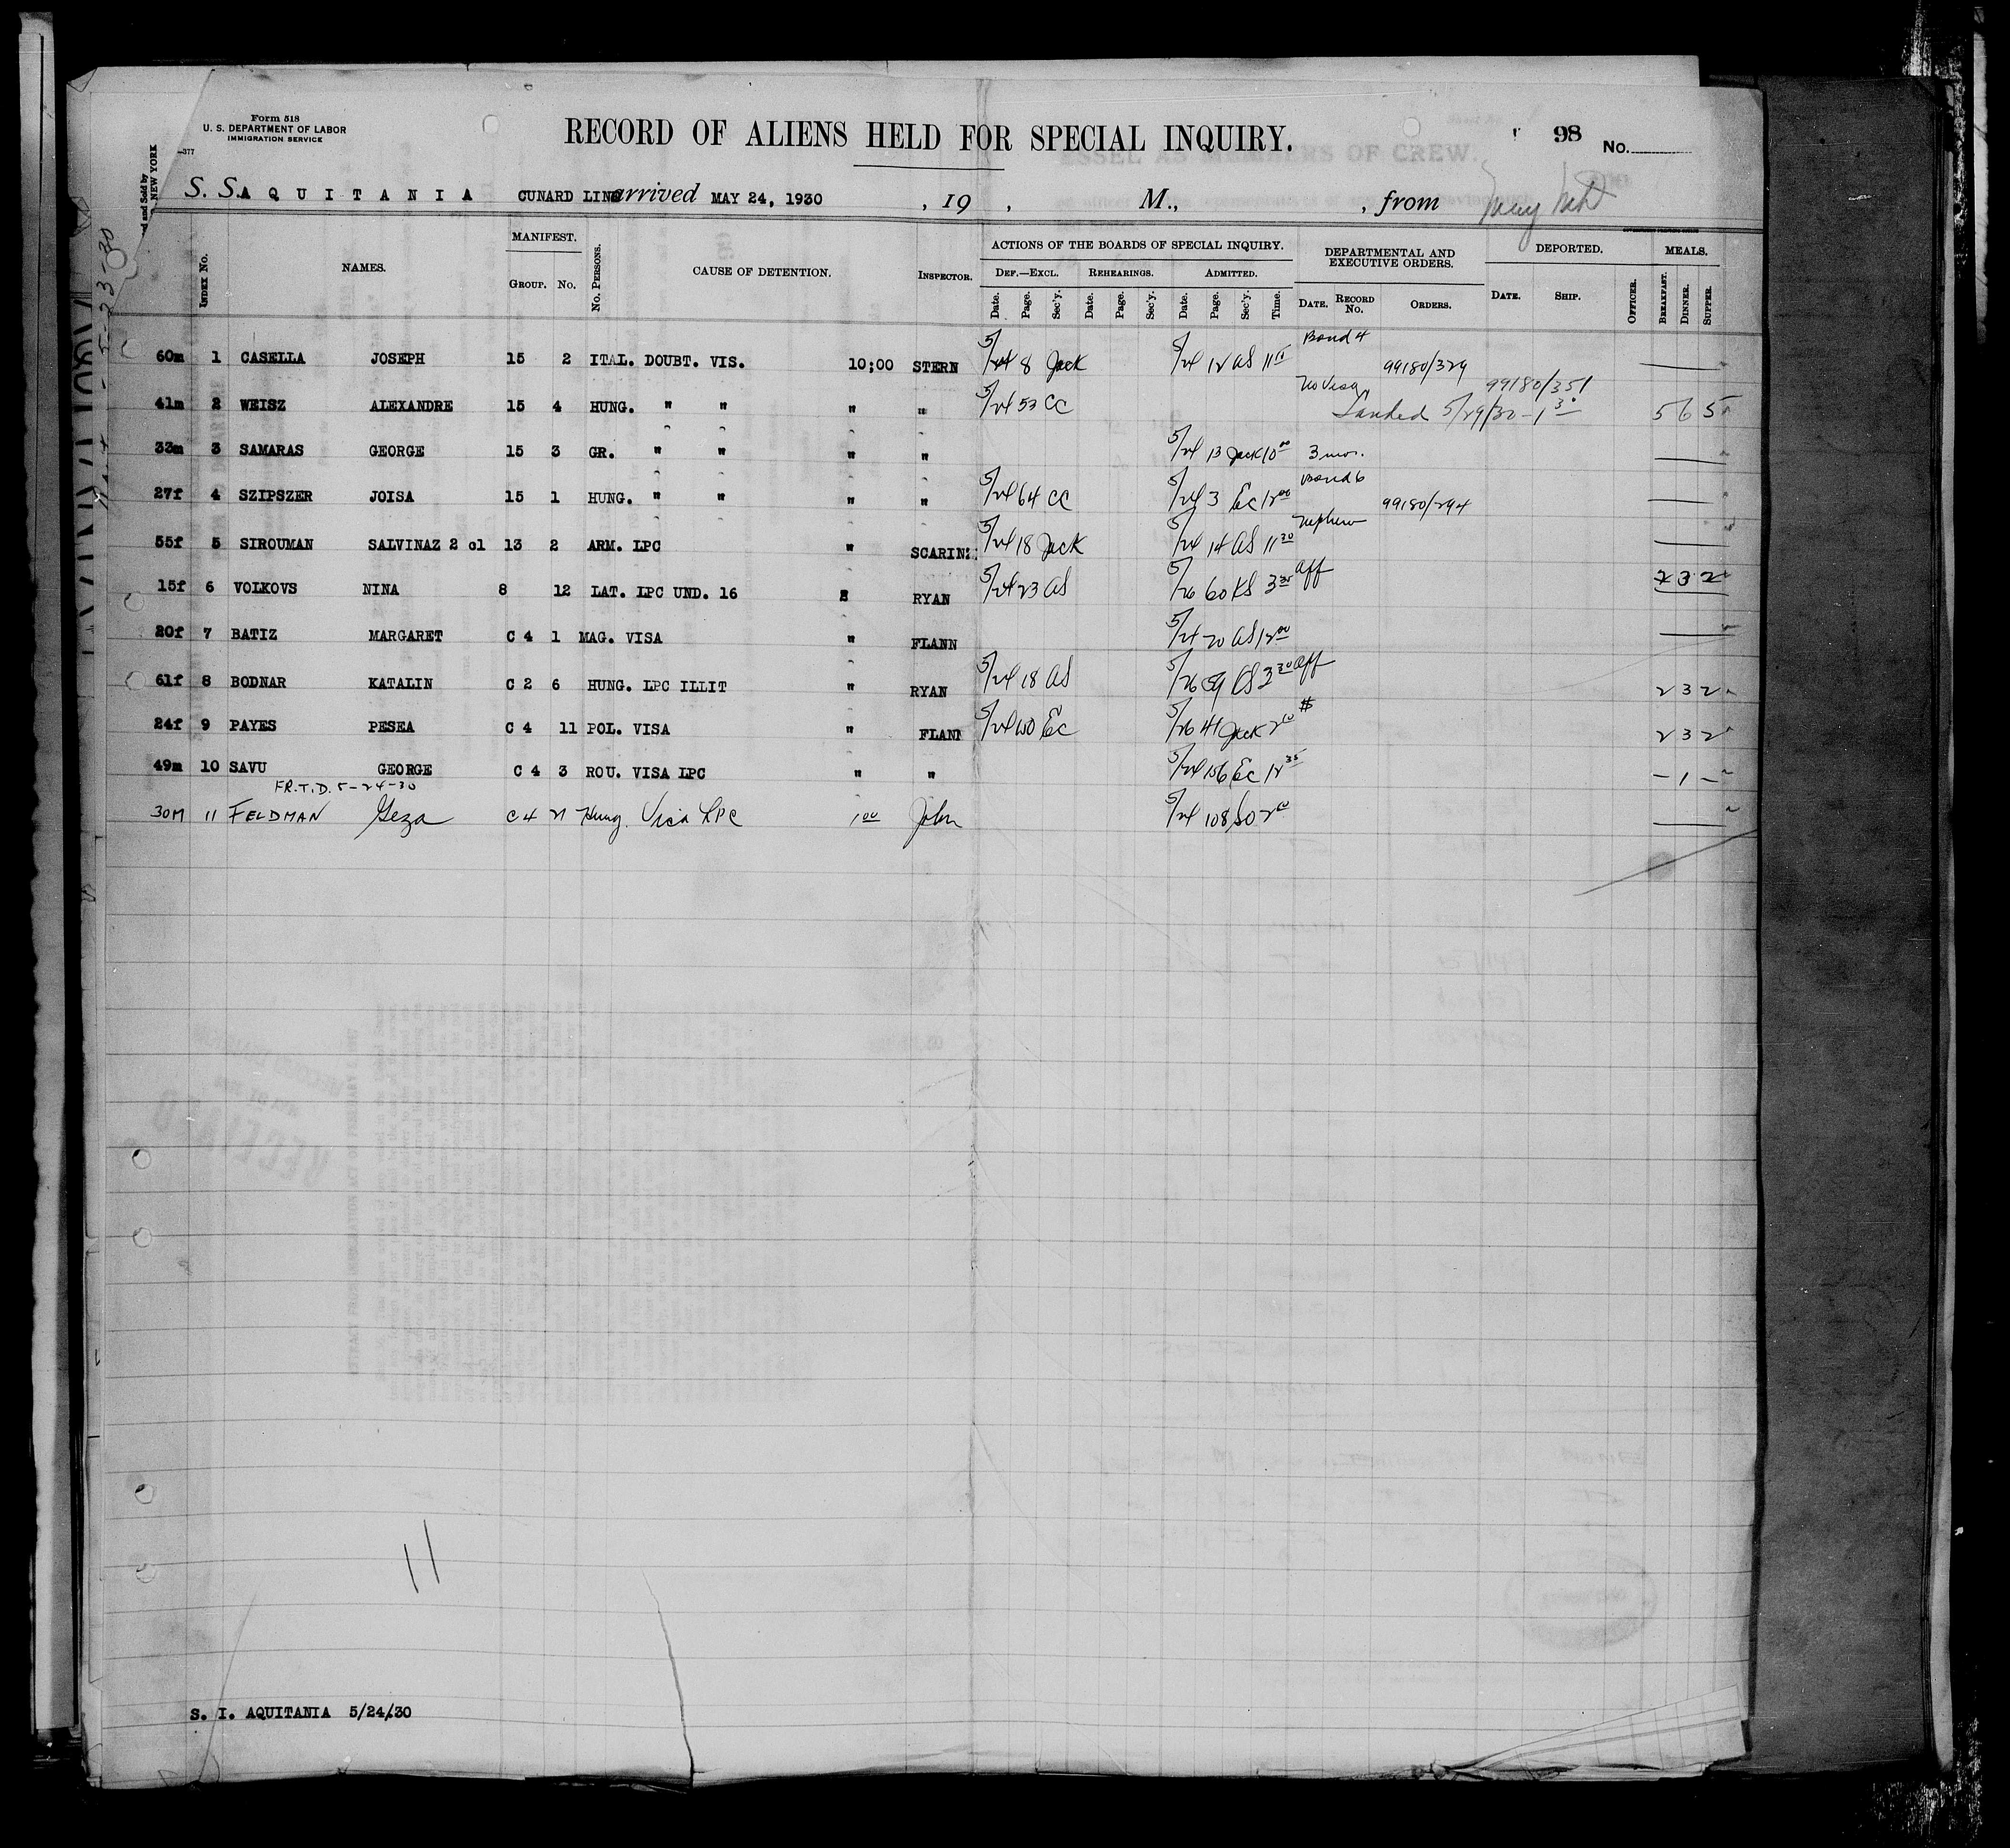 Form 518
U. S. DEPARTMENT OF LABOR
IMMIGRATION SERVICE
RECORD OF ALIENS HELD FOR SPECIAL INQUIRY.
98 No.
and Sold by
NEW YORK
—377
S. S. A Q U I T A N I A CUNARD LINE arrived MAY 24, 1930 , 19 , M., , from
5-23-30
INDEX No. NAMES. MANIFEST. GROUP. No. No. PERSONS. CAUSE OF DETENTION. INSPECTOR. ACTIONS OF THE BOARDS OF SPECIAL INQUIRY. DEPARTMENTAL AND EXECUTIVE ORDERS. DEPORTED. MEALS.
DEF.—EXCL. REHEARINGS. ADMITTED.
Date. Page. Sec'y. Date. Page. Sec'y. Date. Page. Sec'y. Time. DATE. RECORD No. ORDERS. DATE. SHIP. OFFICER. BREAKFAST. DINNER. SUPPER.
Bond 4
60m 1 CASELLA JOSEPH 15 2 ITAL. DOUBT. VIS. 10;00 STERN 5/24 8 Jack 5/24 12 AS 11 15 99180/329
No Visa 99180/351
41m 2 WEISZ ALEXANDRE 15 4 HUNG. " " " " 5/24 53 CC Landed 5/29/30 - 1 30 5 6 5
33m 3 SAMARAS GEORGE 15 3 GR. " " " " 5/24 13 Jack 10 00 3 mos.
Bond 6
27f 4 SZIPSZER JOISA 15 1 HUNG. " " " " 5/24 64 CC 5/24 3 EC 12 00 99180/294
Nephew
55f 5 SIROUMAN SALVINAZ 2 cl 13 2 ARM. LPC " SCARIN 5/24 18 Jack 5/24 14 AS 11 30
15f 6 VOLKOVS NINA 8 12 LAT. LPC UND. 16 " RYAN 5/24 23 AS 5/26 60 KS 3 30 Aff 2 3 2
20f 7 BATIZ MARGARET C 4 1 MAG. VISA " FLANN 5/24 20 AS 12 00
61f 8 BODNAR KATALIN C 2 6 HUNG. LPC ILLIT " RYAN 5/24 18 AS 5/26 59 KS 3 30 Aff 2 3 2
24f 9 PAYES PESEA C 4 11 POL. VISA " FLANN 5/24 150 EC 5/26 41 Jack 2 00 $ 2 3 2
49m 10 SAVU GEORGE C 4 3 ROU. VISA LPC " " 5/24 156 EC 12 35 — 1 —
FR.T.D. 5-24-30
30M 11 FELDMAN Geza C 4 21 Hung. Visa LPC 1 00 John 5/24 108 SO 2 00
11
S. I. AQUITANIA 5/24/30